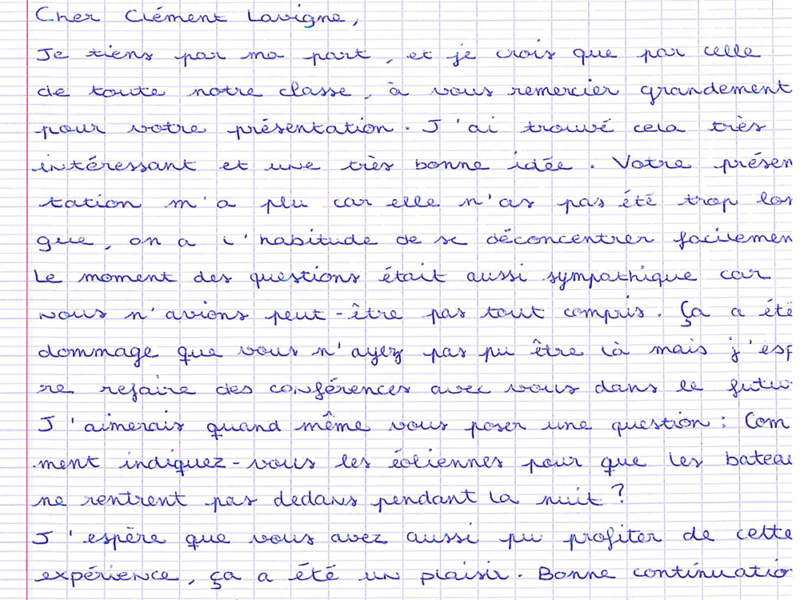 Cher Clément Lavigne,
Je tiens par ma part, et je crois que par celle
de toute notre classe, à vous remercier grandement
pour votre présentation. J'ai trouvé cela très
intéressant et une très bonne idée. Votre présen
tation m'a plu car elle n'as pas été trop lon
gue, on a l'habitude de se déconcentrer facilemen
Le moment des questions était aussi sympathique car
nous n'avions peut-être pas tout compris. Ça a été
dommage que vous n'ayez pas pu être là mais j'esp
re refaire des conférences avec vous dans le futu
J'aimerais quand même vous poser une question : Com
ment indiquez-vous les éoliennes pour que les bateau
ne rentrent pas dedans pendant la nuit ?
J'espère que vous avez aussi pu profiter de cette
expérience, ça a été un plaisir. Bonne continuatio